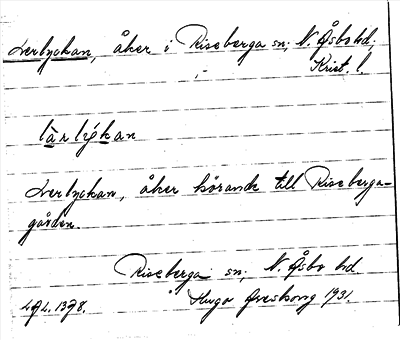 Lerlyckan, åker i Riseberga sn; N. Åsbo hd;
Krist. l.
lärlỳkan
Lerlyckan, åker hörande till Riseberga-
gården.
Riseberga sn; N. Åsbo hd
Hugo Areskoug 1931.